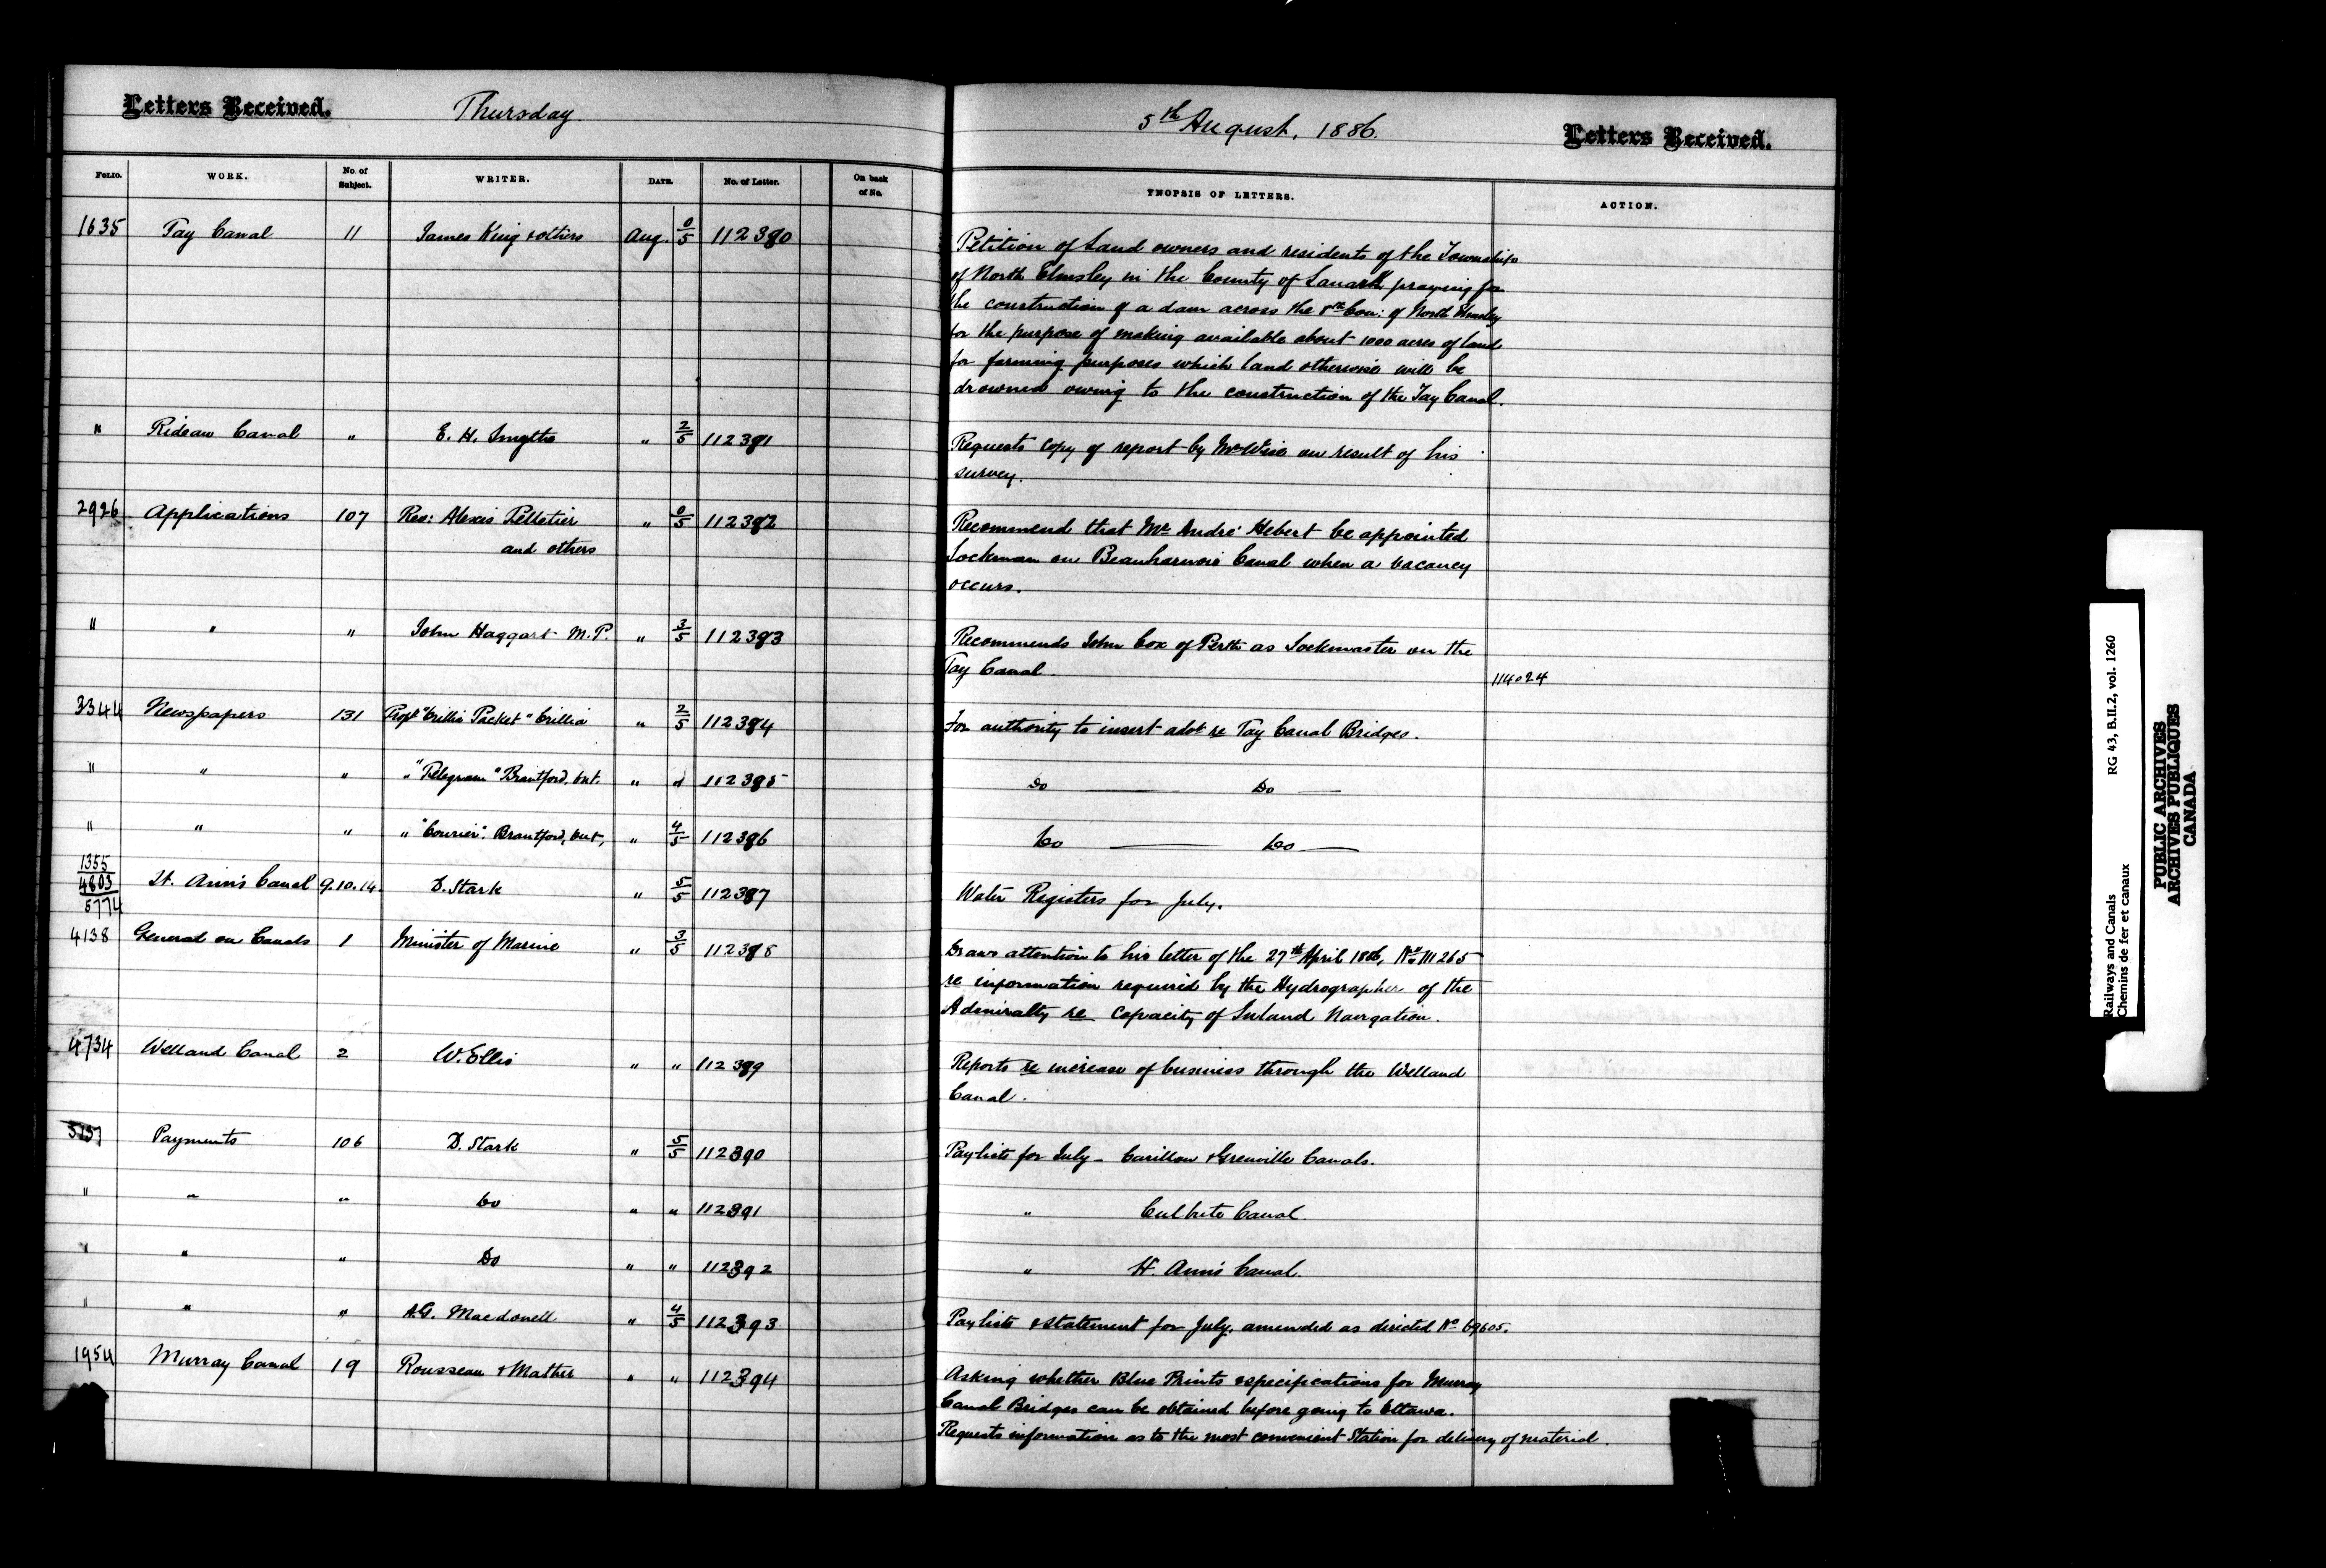 Letters Received.
Thursday
5th August, 1886.
Letters Received.
FOLIO. WORK. No. of Subject. WRITER. DATE. No. of Letter. On back of No. YNOPSIS OF LETTERS. ACTION.
1635 Tay Canal 11 James King & others Aug. 0/5 112380
Petition of Land owners and residents of the Township
of North Elmsley in the County of Lanark praying for
the construction of a dam across the 8th Con: of North Elmsley
for the purpose of making available about 1000 acres of land
for farming purposes which land otherwise will be
drowned owing to the construction of the Tay Canal.
" Rideau Canal " E. H. Smythe " 2/5 112381
Requests copy of report by Mr Wise on result of his
survey.
2926 Applications 107 Rev: Alexis Pelletier " 0/5 112382
and others
Recommend that Mr André Hebert be appointed
Lockman on Beauharnois Canal when a vacancy
occurs.
" " " John Haggart M.P. " 3/5 112383
Recommends John Cox of Perth as Lockmaster on the
Tay Canal. 114024
3344 Newspapers 131 Propr "Orillia Packet" Orillia " 2/5 112384
For authority to insert advt re Tay Canal Bridges.
" " " " "Telegram" Brantford, Ont. " " 112385
Do Do
" " " " "Courier". Brantford, Ont, " 4/5 112386
Do Do
1355
4803
5774
St. Ann's Canal 9.10.14. D. Stark " 5/5 112387
Water Registers for July.
4138 General on Canals 1 Minister of Marine " 3/5 112388
Draws attention to his letter of the 27th April 1886, No M 265
re information required by the Hydrographer of the
Admiralty re capacity of Inland Navigation.
4734 Welland Canal 2 W. Ellis " " 112389
Reports re increase of business through the Welland
Canal.
Payments 106 D. Stark " 5/5 112390
Paylists for July - Carillon & Grenville Canals.
" " " Do " " 112391
" Culbute Canal.
" " " Do " " 112392
" St. Ann's Canal.
" " " A.G. Macdonell " 4/5 112393
Paylists & statement for July, amended as directed No 69605.
1954 Murray Canal 19 Rousseau & Mather " " 112394
Asking whether Blue Prints & specifications for Murray
Canal Bridges can be obtained before going to Ottawa.
Requests information as to the most convenient Station for delivery of material.
Railways and Canals RG 43, B.II.2, vol. 1260
Chemins de fer et canaux
PUBLIC ARCHIVES
ARCHIVES PUBLIQUES
CANADA